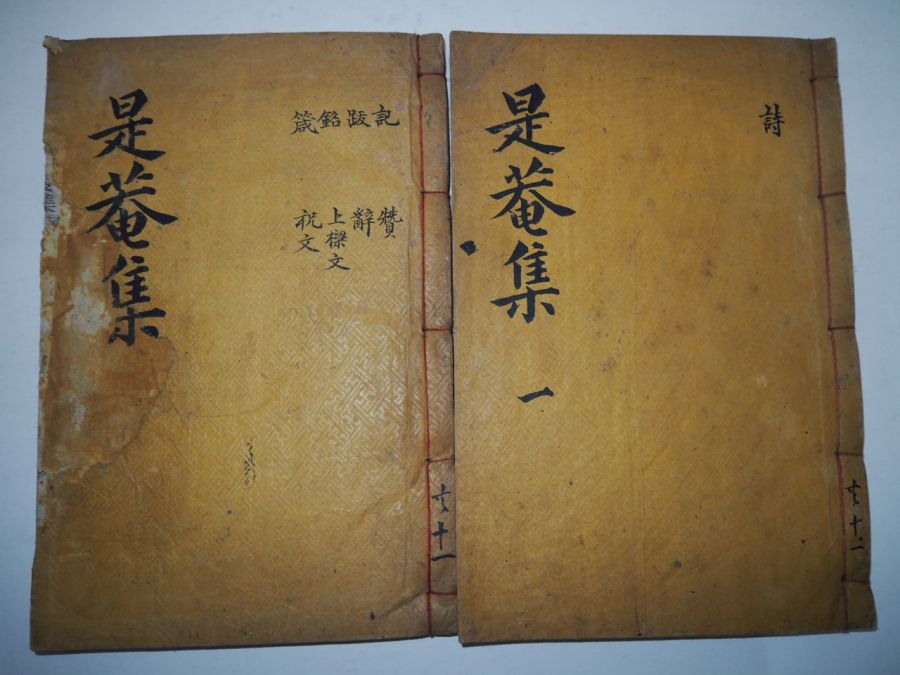 是菴集 一
詩
共十二
是菴集
記 跋 銘 箴
贊
辭
上樑文
祝文
共十一